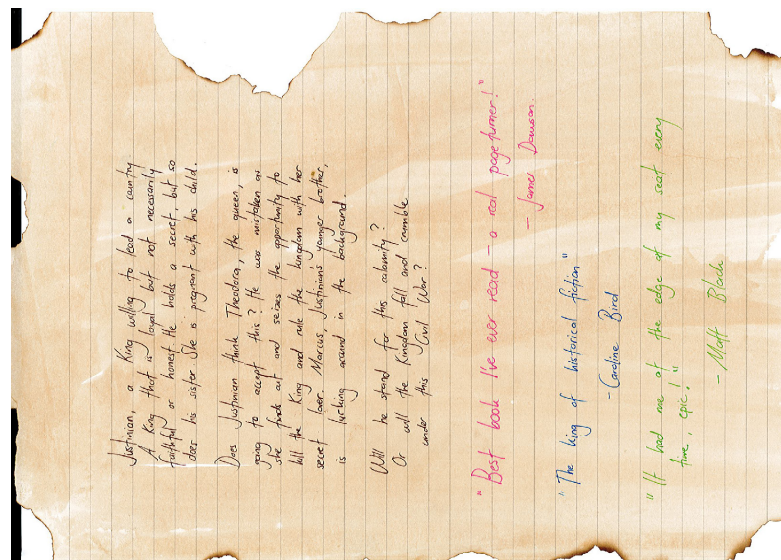 Justinian, a King willing to lead a country
A King that is loyal but not necessarily
faithful or honest. He holds a secret, but so
does his sister. She is pregnant with his child.
Does Justinian think Theodora, the queen, is
going to accept this? He was mistaken as
she finds out and seizes the opportunity to
kill the King and rule the kingdom with her
secret lover. Marcus, Justinian's younger brother,
is lurking around in the background.
Will he stand for this calamity?
Or will the Kingdom fall and crumble
under this Civil War?
"Best book I've ever read - a real page turner!"
- James Dawson.
"The king of historical fiction"
- Caroline Bird
"It had me at the edge of my seat every
time, epic!"
- Matt Black